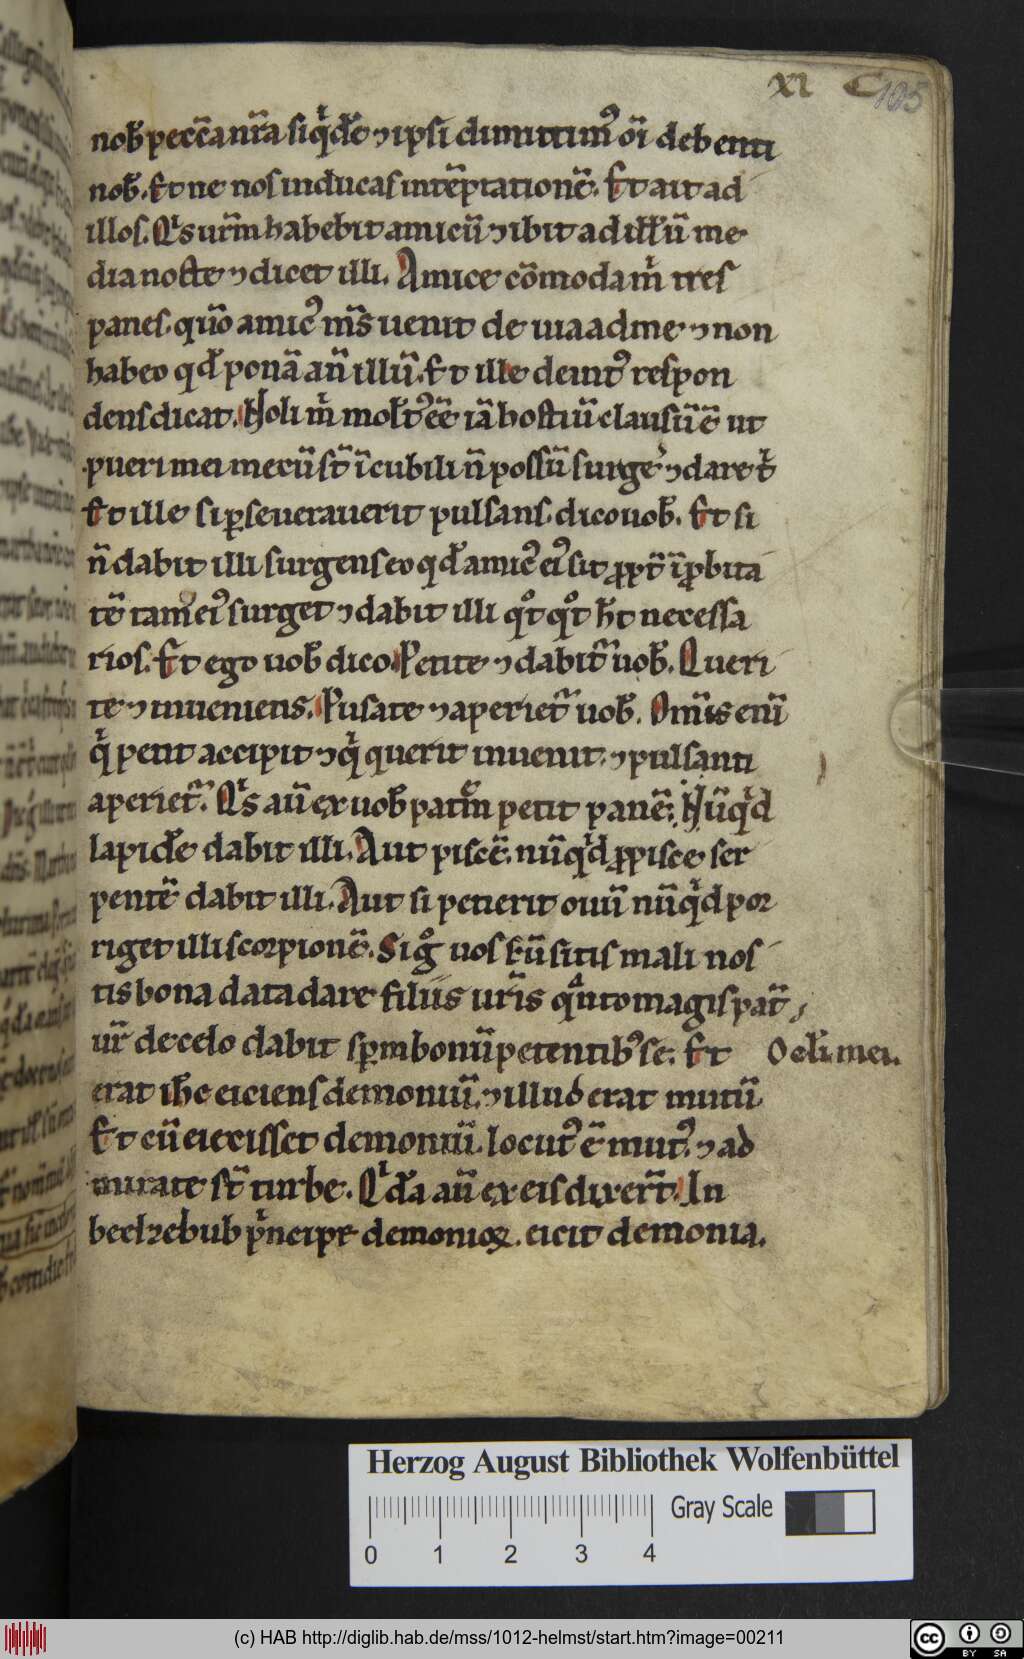 XI C 105
nob̄ pecc̄a nr̄a siq̇dē ⁊ ipsi dimittim᷒ oı̄ debenti
nob̄. Et ne nos inducas intēptationē. Et ait ad
illos. Qͥs urm̄ habebit amicū ⁊ ibit ad illū me
dia nocte ⁊ dicet illi. Amice cōmoda mͥ tres
panes. qm̄o amic᷒ ms̄ uenit de uia ad me ⁊ non
habeo qd̄ ponā añ illū. Et ille deint᷒ respon
dens dicat. Noli mͥ molest᷒ eē iā hostiū clausū ē ut
pueri mei mecū st̄ ı̄ cubili ñ possū surge᷒ ⁊ dare tͥ
Et ille si ꝑseuerauerit pulsans. dico uob̄. Et si
ñ dabit illi surgens eo qd̄ amic᷒ ei᷒ sit ꝓpt̄ ı̄ꝓbita
tē tam̄ ei᷒ surget ⁊ dabit illi qͦtqͦt h̄t necessa
rios. Et ego uob̄ dico. Petite ⁊ dabit᷑ uob̄. Queri
te ⁊ inuenietis. Pusate ⁊ aperiet᷑ uob̄. Om̄is enı̄
qͥ petit accipit ⁊ qͥ querit inuenit. ⁊ pulsanti
aperiet᷑. Qͥs aū ex uob̄ patrm̄ petit panē. Nūqͥd
lapidē dabit illi. Aut piscē. nūqͥd ꝓ pisce ser
pentē dabit illi. Aut si petierit ouū nūqͥd por
riget illi scorpionē. Sigͦ uos kū sitis mali nos
tis bona data dare filiis uris̄ qͣnto magis pat̄
ur̄ de celo dabit spm̄ bonū petentib᷒ se. Et
Oclī mei.
erat ihc̄ eiciens demoniū. ⁊ illud erat mutū
Et cū eiecisset demoniū. locut᷒ ē mut᷒. ⁊ ad
mirate st̄ turbe. Qͥdā aū ex eis dixer̄t. In
beelzebub pͥncipe demonioꝝ. eicit demonia.
Herzog August Bibliothek Wolfenbüttel
Gray Scale
0 1 2 3 4
(c) HAB http://diglib.hab.de/mss/1012-helmst/start.htm?image=00211
cc BY SA